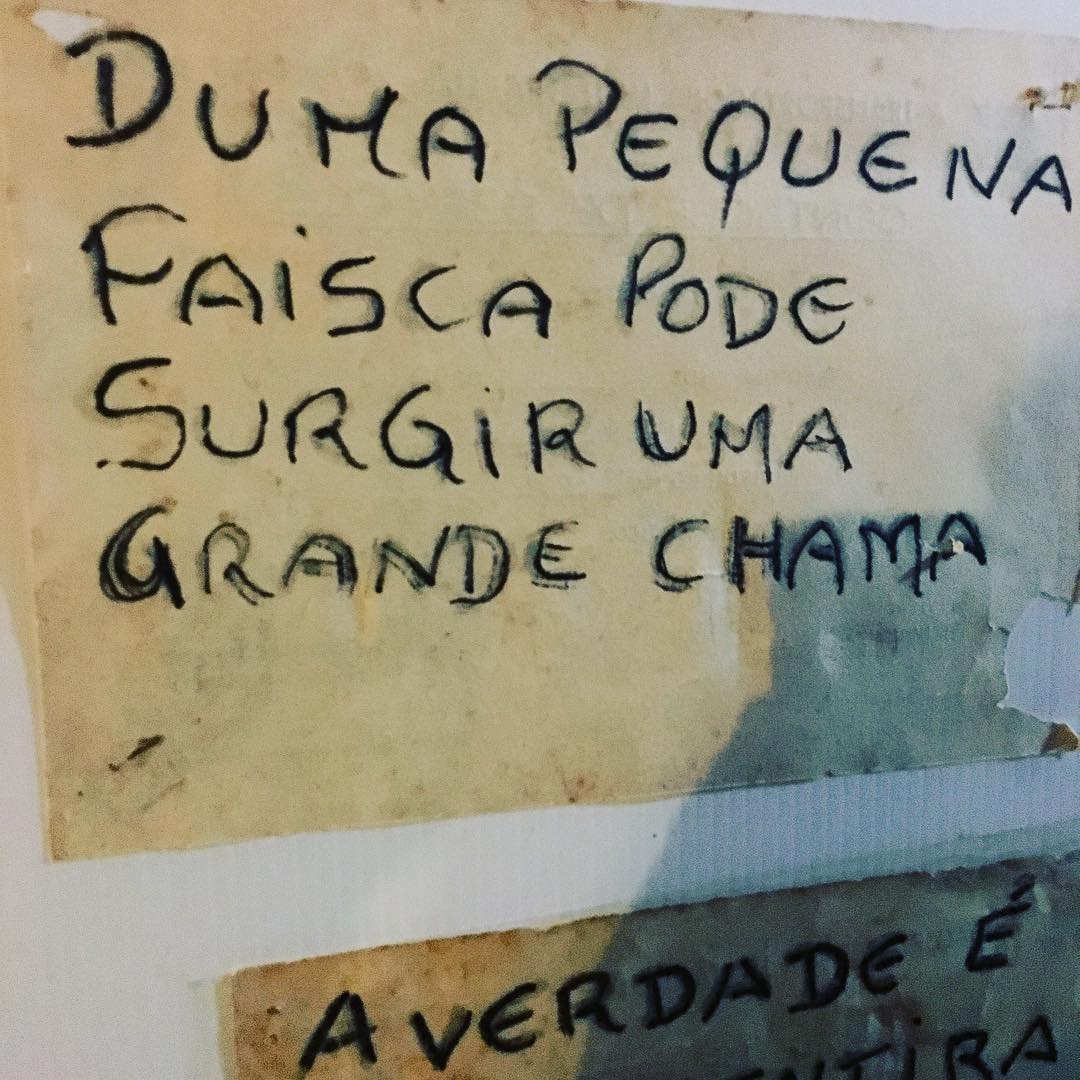 DUMA PEQUENA
FAiSCA PODE
SURGiR UMA
GRANDE CHAMA
A VERDADE É